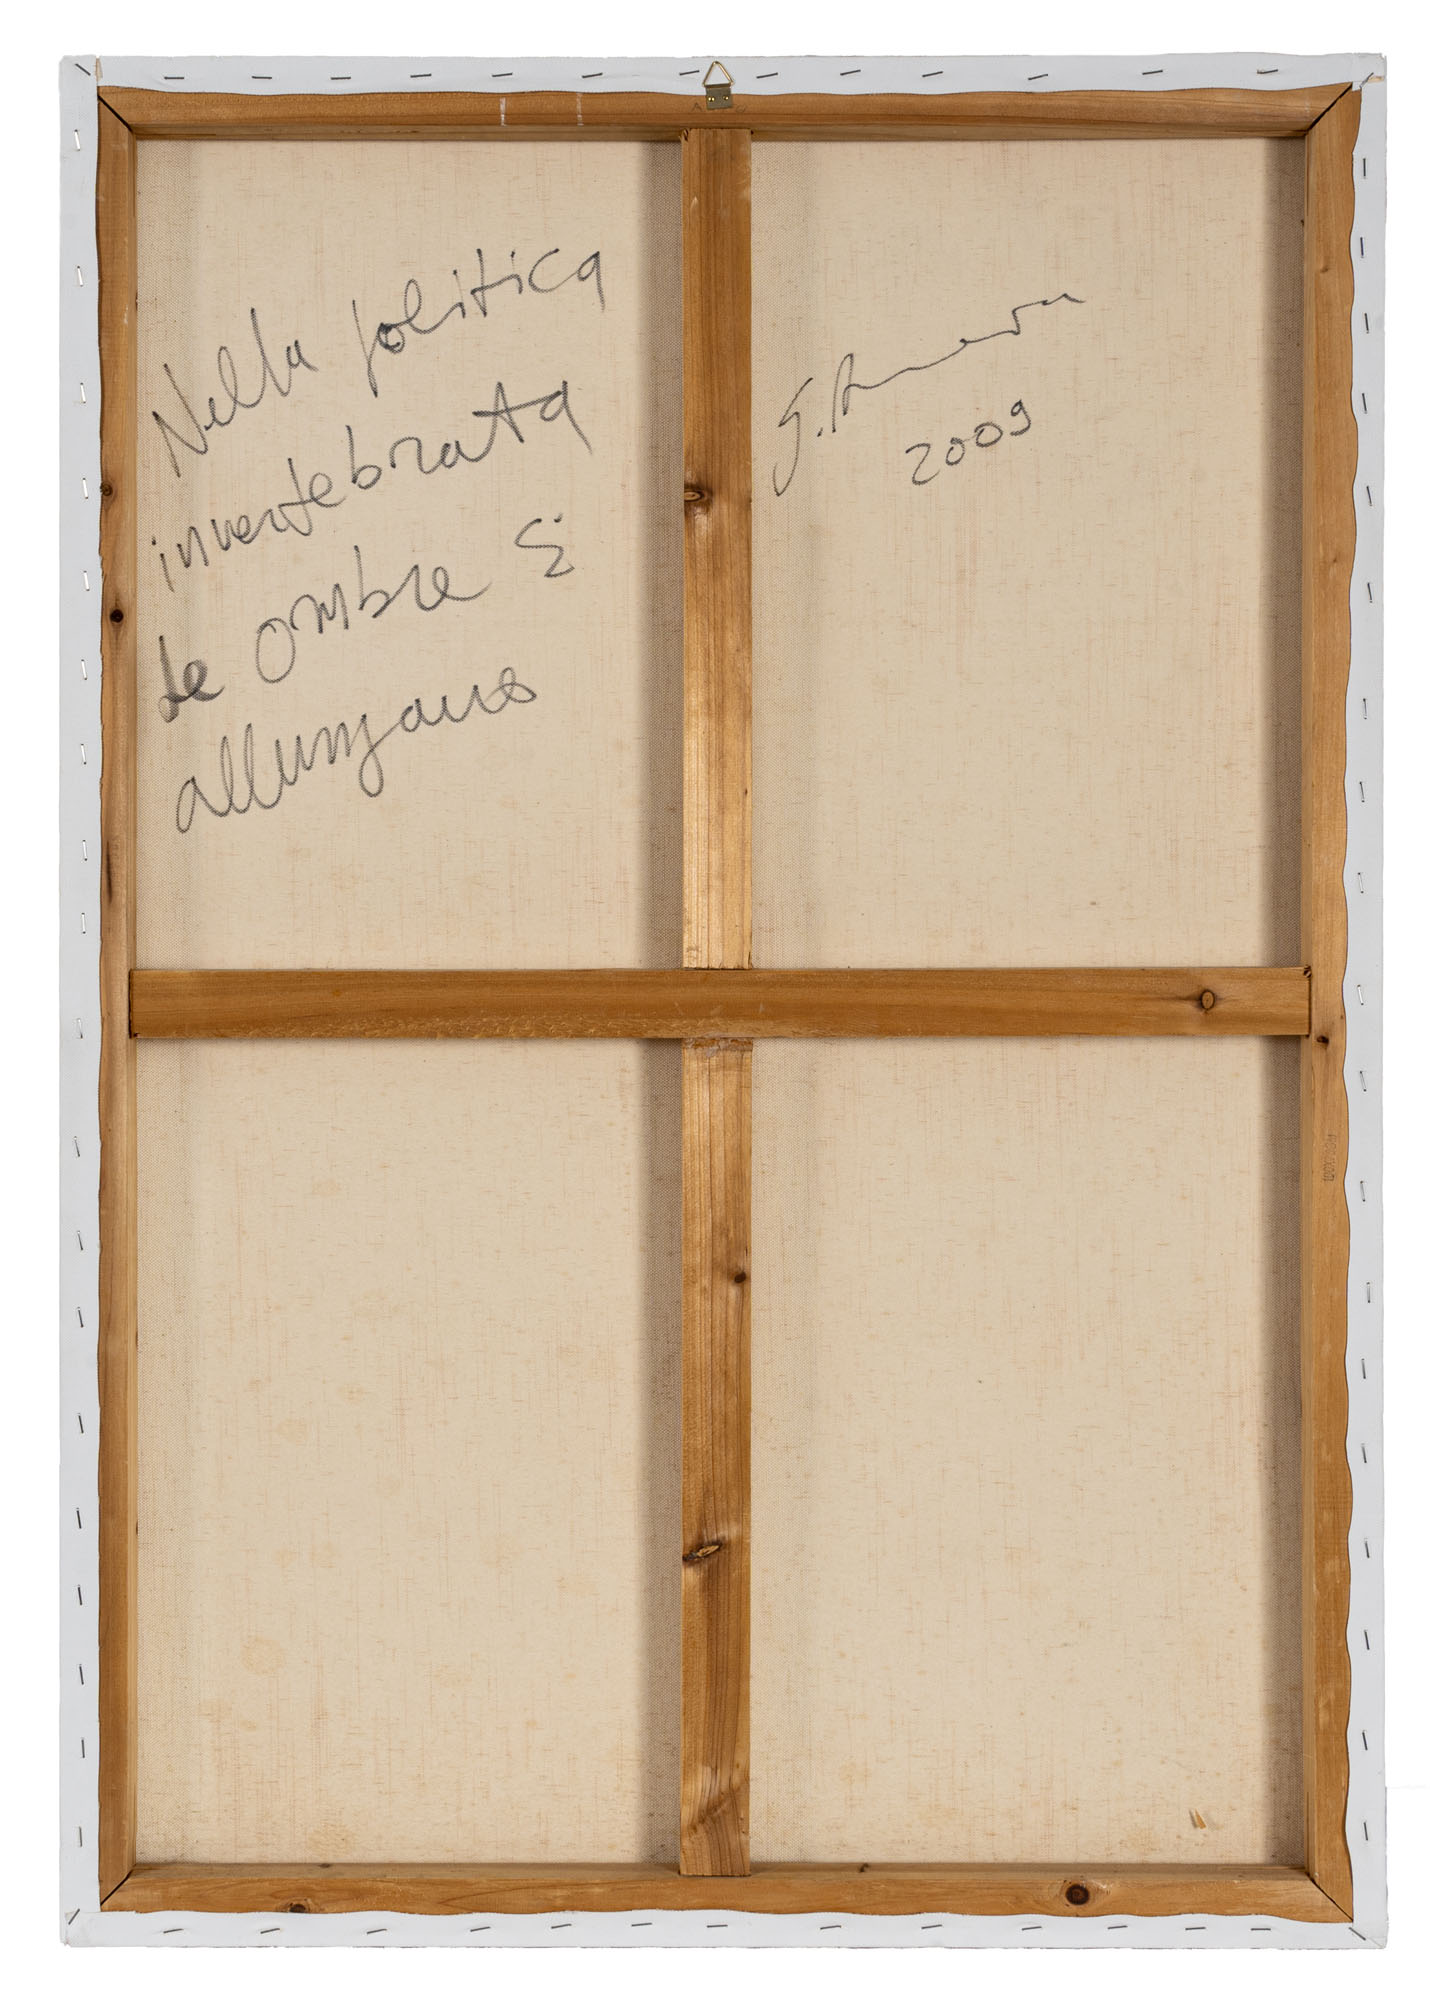 Nella politica
invertebrata
le ombre si
allungano
2009